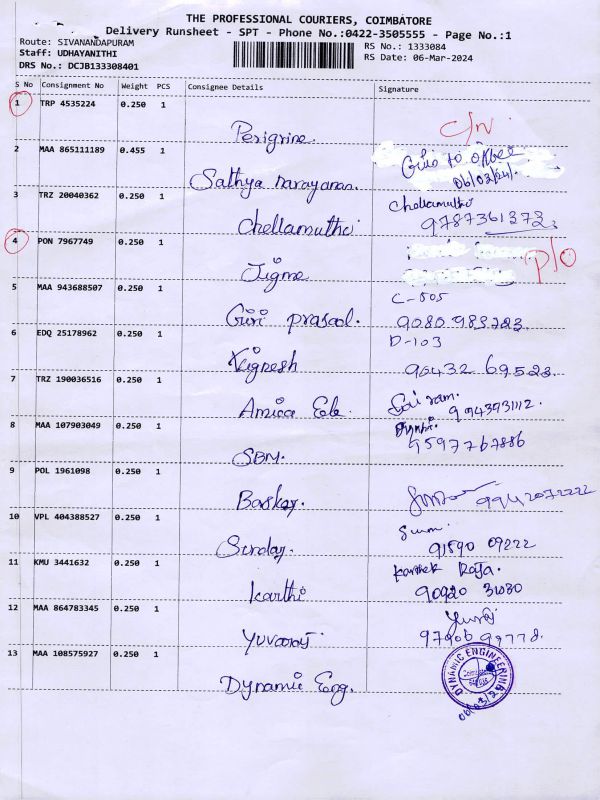 THE PROFESSIONAL COURIERS, COIMBATORE
Delivery Runsheet - SPT - Phone No.:0422-3505555 - Page No.:1
Route: SIVANANDAPURAM
Staff: UDHAYANITHI
DRS No.: DCJB133308401
RS No.: 1333084
RS Date: 06-Mar-2024
S No Consignment No Weight PCS Consignee Details Signature
1 TRP 4535224 0.250 1
Perigrine
2 MAA 865111189 0.455 1
Sathya narayanan
06/03/24
3 TRZ 20040362 0.250 1
Chellamuthu
Chellamuthu
9787361373
4 PON 7967749 0.250 1
Jigme
5 MAA 943688507 0.250 1
Giri prasad.
C-505
9080 989723
6 EDQ 25178962 0.250 1
Vignesh
D-103
90432 69523
7 TRZ 190036516 0.250 1
Sai ram.
9943931112.
8 MAA 107903049 0.250 1
SBM.
9597767886
9 POL 1961098 0.250 1
Baskar.
9942072222
10 VPL 404388527 0.250 1
91590 09222
11 KMU 3441632 0.250 1
Karthi
Karthik Raja.
90920 31080
12 MAA 864783345 0.250 1
Yuvaraj
Yuvaraj
97906 99778.
13 MAA 108575927 0.250 1
Dynamic Eng.
DYNAMIC ENGINEERING